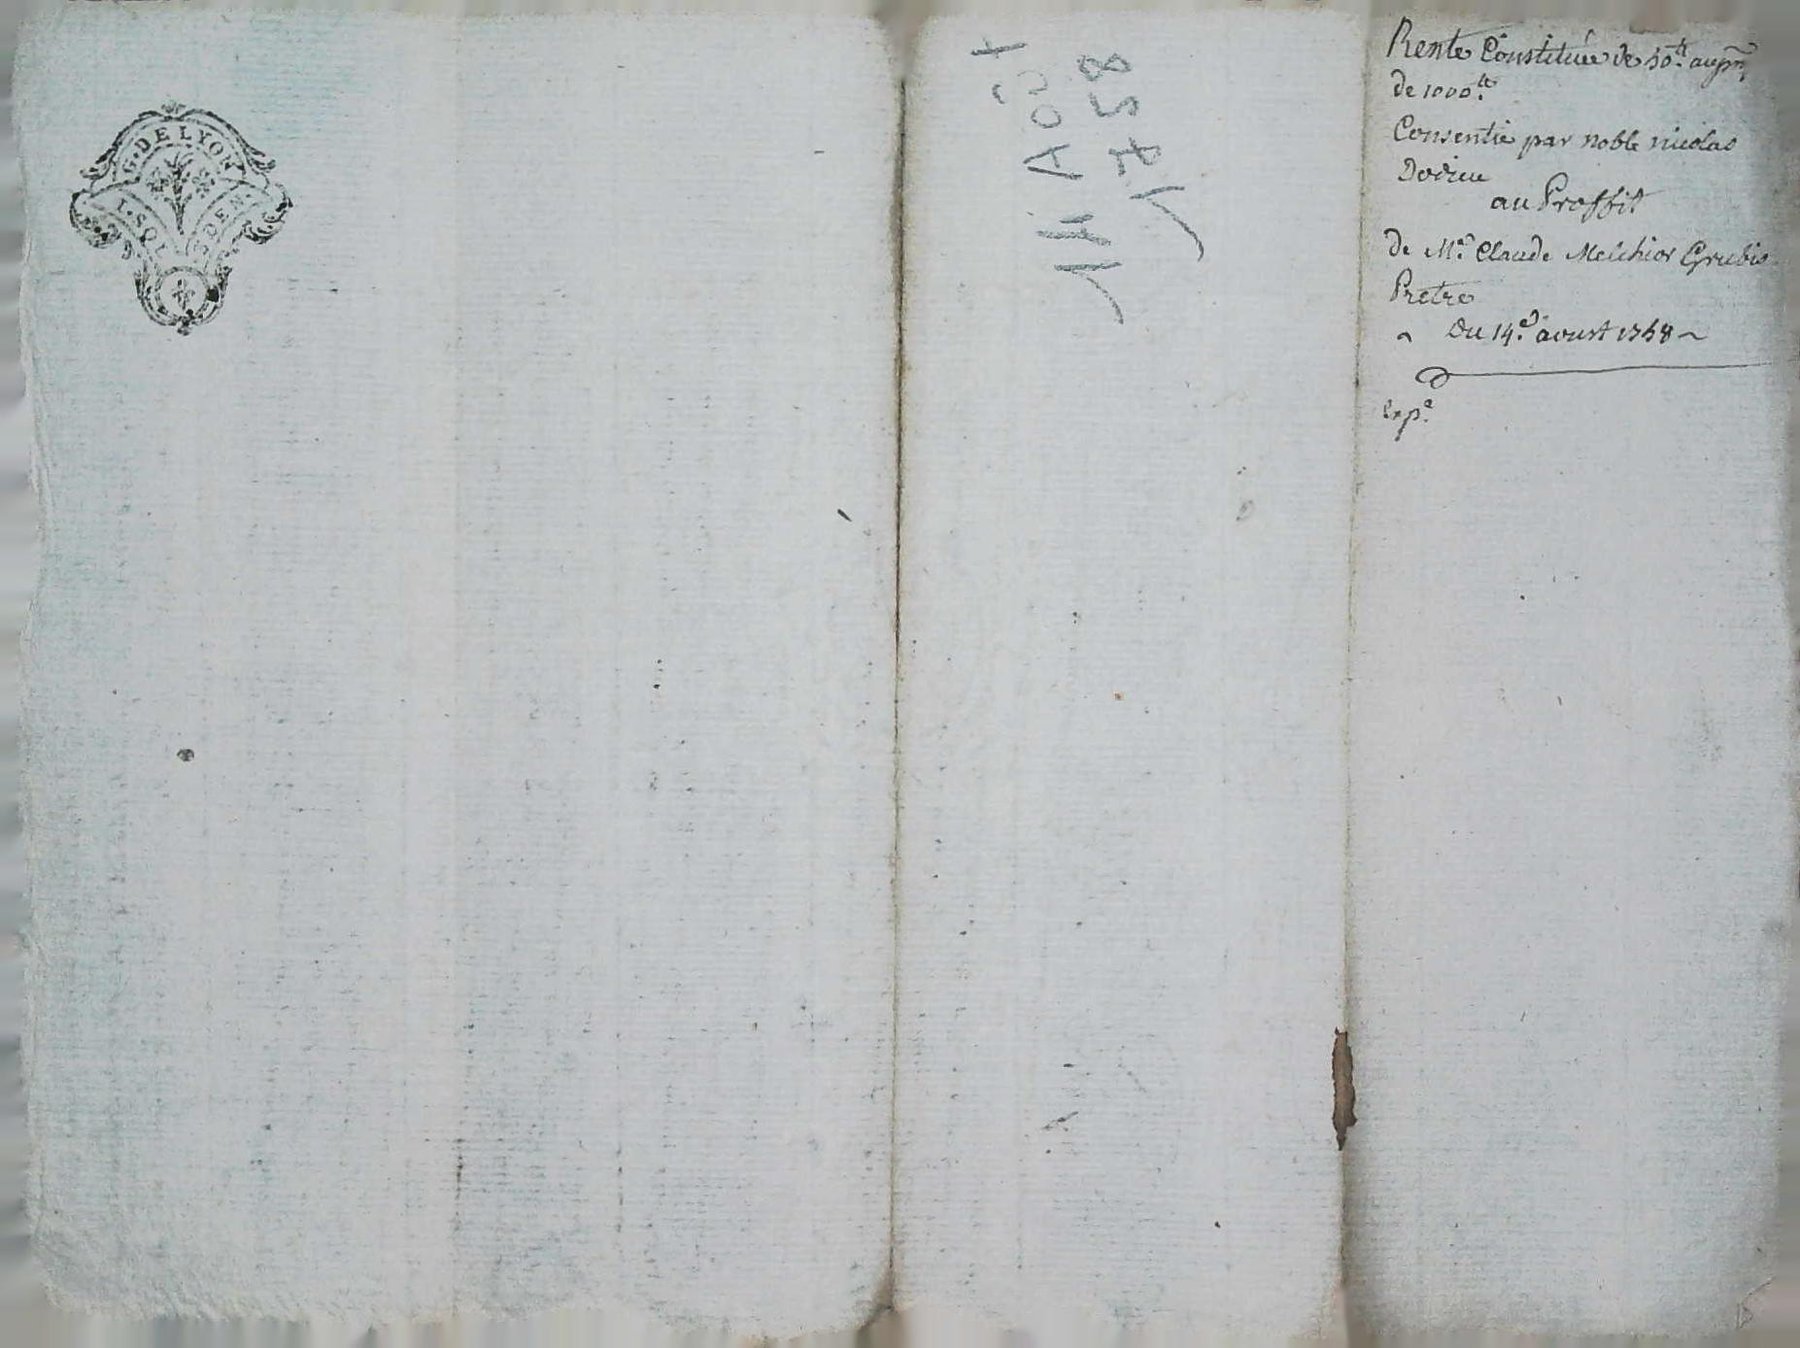 G. DE LYON
1. SOL. 8 DEN.
14 Août
1758
Rente Constituée de 50.ᵗᵗ au pn̄
de 1000.ᵗᵗ
Consentie par noble nicolas
Dodieu
au Proffit
de Mᵉ. Claude Melchior Grubis
Pretre
~ Du 14.ᵉ aoust 1758 ~
Exp.ᵉ